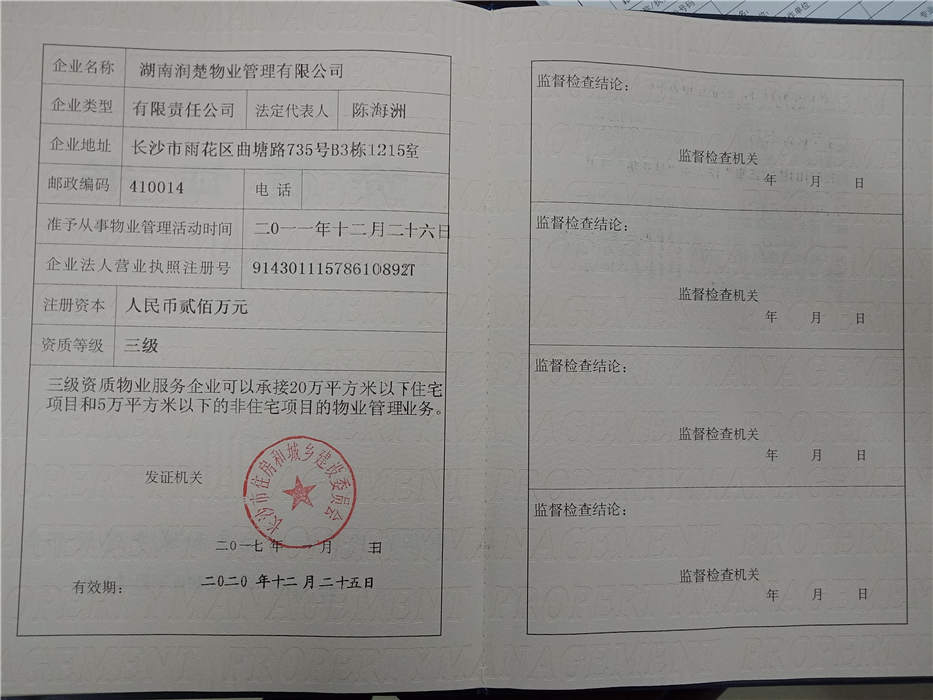 企业名称 湖南润楚物业管理有限公司
企业类型 有限责任公司 法定代表人 陈海洲
企业地址 长沙市雨花区曲塘路735号B3栋1215室
邮政编码 410014 电话
准予从事物业管理活动时间 二0一一年十二月二十六日
企业法人营业执照注册号 91430111578610892T
注册资本 人民币贰佰万元
资质等级 三级
三级资质物业服务企业可以承接20万平方米以下住宅
项目和5万平方米以下的非住宅项目的物业管理业务。
发证机关
长沙市住房和城乡建设委员会
二0一七 年 一 月 三日
有效期： 二0二0 年十二月二十五日
监督检查结论：
监督检查机关
年 月 日
监督检查结论：
监督检查机关
年 月 日
监督检查结论：
监督检查机关
年 月 日
监督检查结论：
监督检查机关
年 月 日